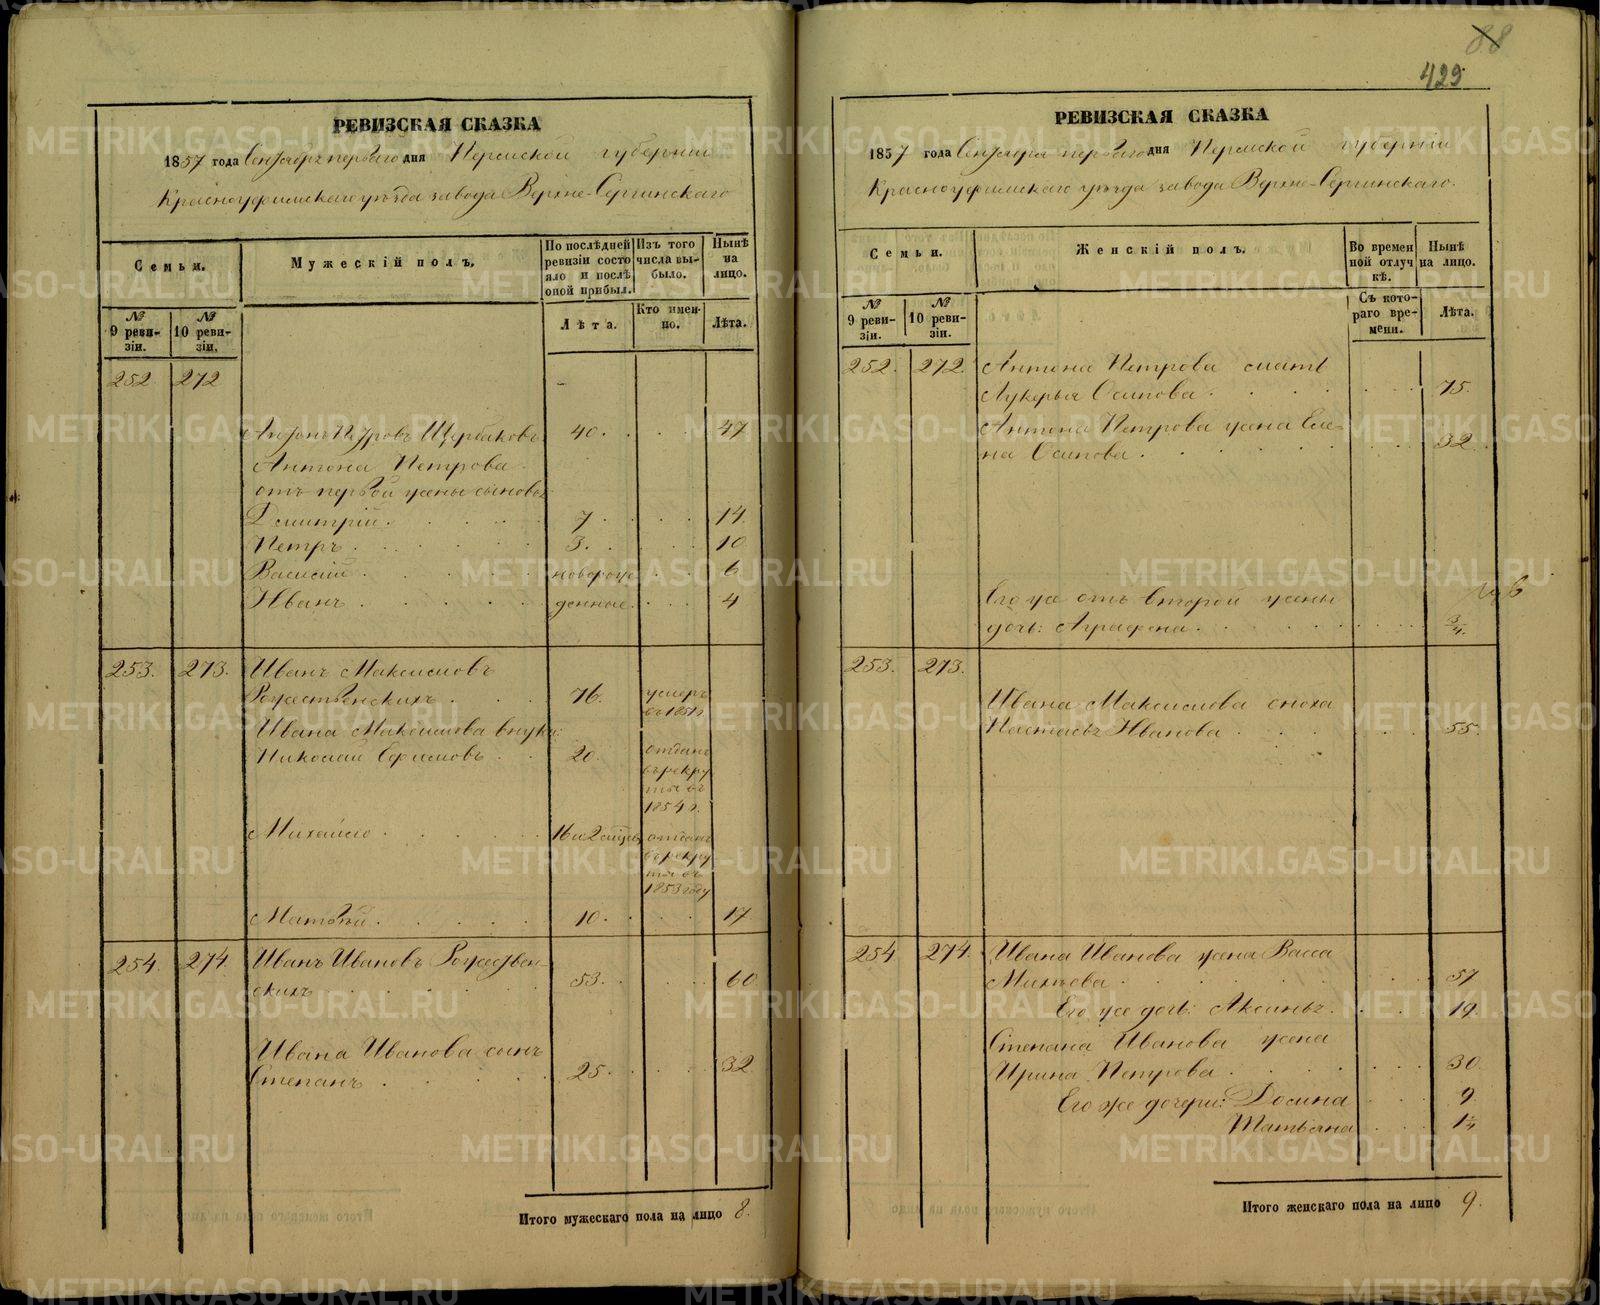 88
429
РЕВИЗСКАЯ СКАЗКА
1857 года Сентября перваго дня Пермской губернии
Красноуфимскаго уѣзда завода Верхне-Сергинскаго
Семьи.
Мужескій полъ.
По послѣдней ревизіи состояло и послѣ оной прибыл.
Изъ того числа выбыло.
Нынѣ на лицо.
№ 9 ревизіи.
№ 10 ревизіи.
Лѣта.
Кто именно.
Лѣта.
252 272
Антонъ Петровъ Щербаковъ 40. 47
Антона Петрова
отъ первой жены сыновья
Дмитрій. 7. 14
Петръ. 3. 10
Василій. новорож- 6
Иванъ. денные. 4
253. 273. Иванъ Максимовъ
Рожественскихъ 76. умеръ
въ 1851 г.
Ивана Максимова внуки:
Николай Ефимовъ 20. отданъ
въ рекру
ты въ
1854 г.
Михайло 16 и 2 мѣсяц. отданъ
въ рекру
ты въ
1853 году
Матвѣй. 10. 17
254. 274. Иванъ Ивановъ Рожествен-
скихъ 53. 60
Ивана Иванова сынъ
Степанъ 25. 32
Итого мужескаго пола на лицо 8.
РЕВИЗСКАЯ СКАЗКА
1857 года Сентября перваго дня Пермской губерніи
Красноуфимскаго уѣзда завода Верхне-Сергинскаго.
Семьи.
Женскій полъ.
Во временной отлучкѣ.
Нынѣ на лицо.
№ 9 ревизіи.
№ 10 ревизіи.
Съ котораго времени.
Лѣта.
252. 272. Антона Петрова мать
Лукерья Осипова. 75.
Антона Петрова жена Еле-
на Осипова. 32.
Его же отъ второй жены
дочь: Аграфена. 3/4.
253. 273.
Ивана Максимова сноха
Настасья Иванова 55.
254 274. Ивана Иванова жена Васса
Михѣева 57
Его же дочь: Аксинья. 19
Степана Иванова жена
Ирина Петрова 30
Его же дочери: Домина 9
Татьяна 1 1/4
Итого женскаго пола на лицо 9.
METRIKI.GASO-URAL.RU